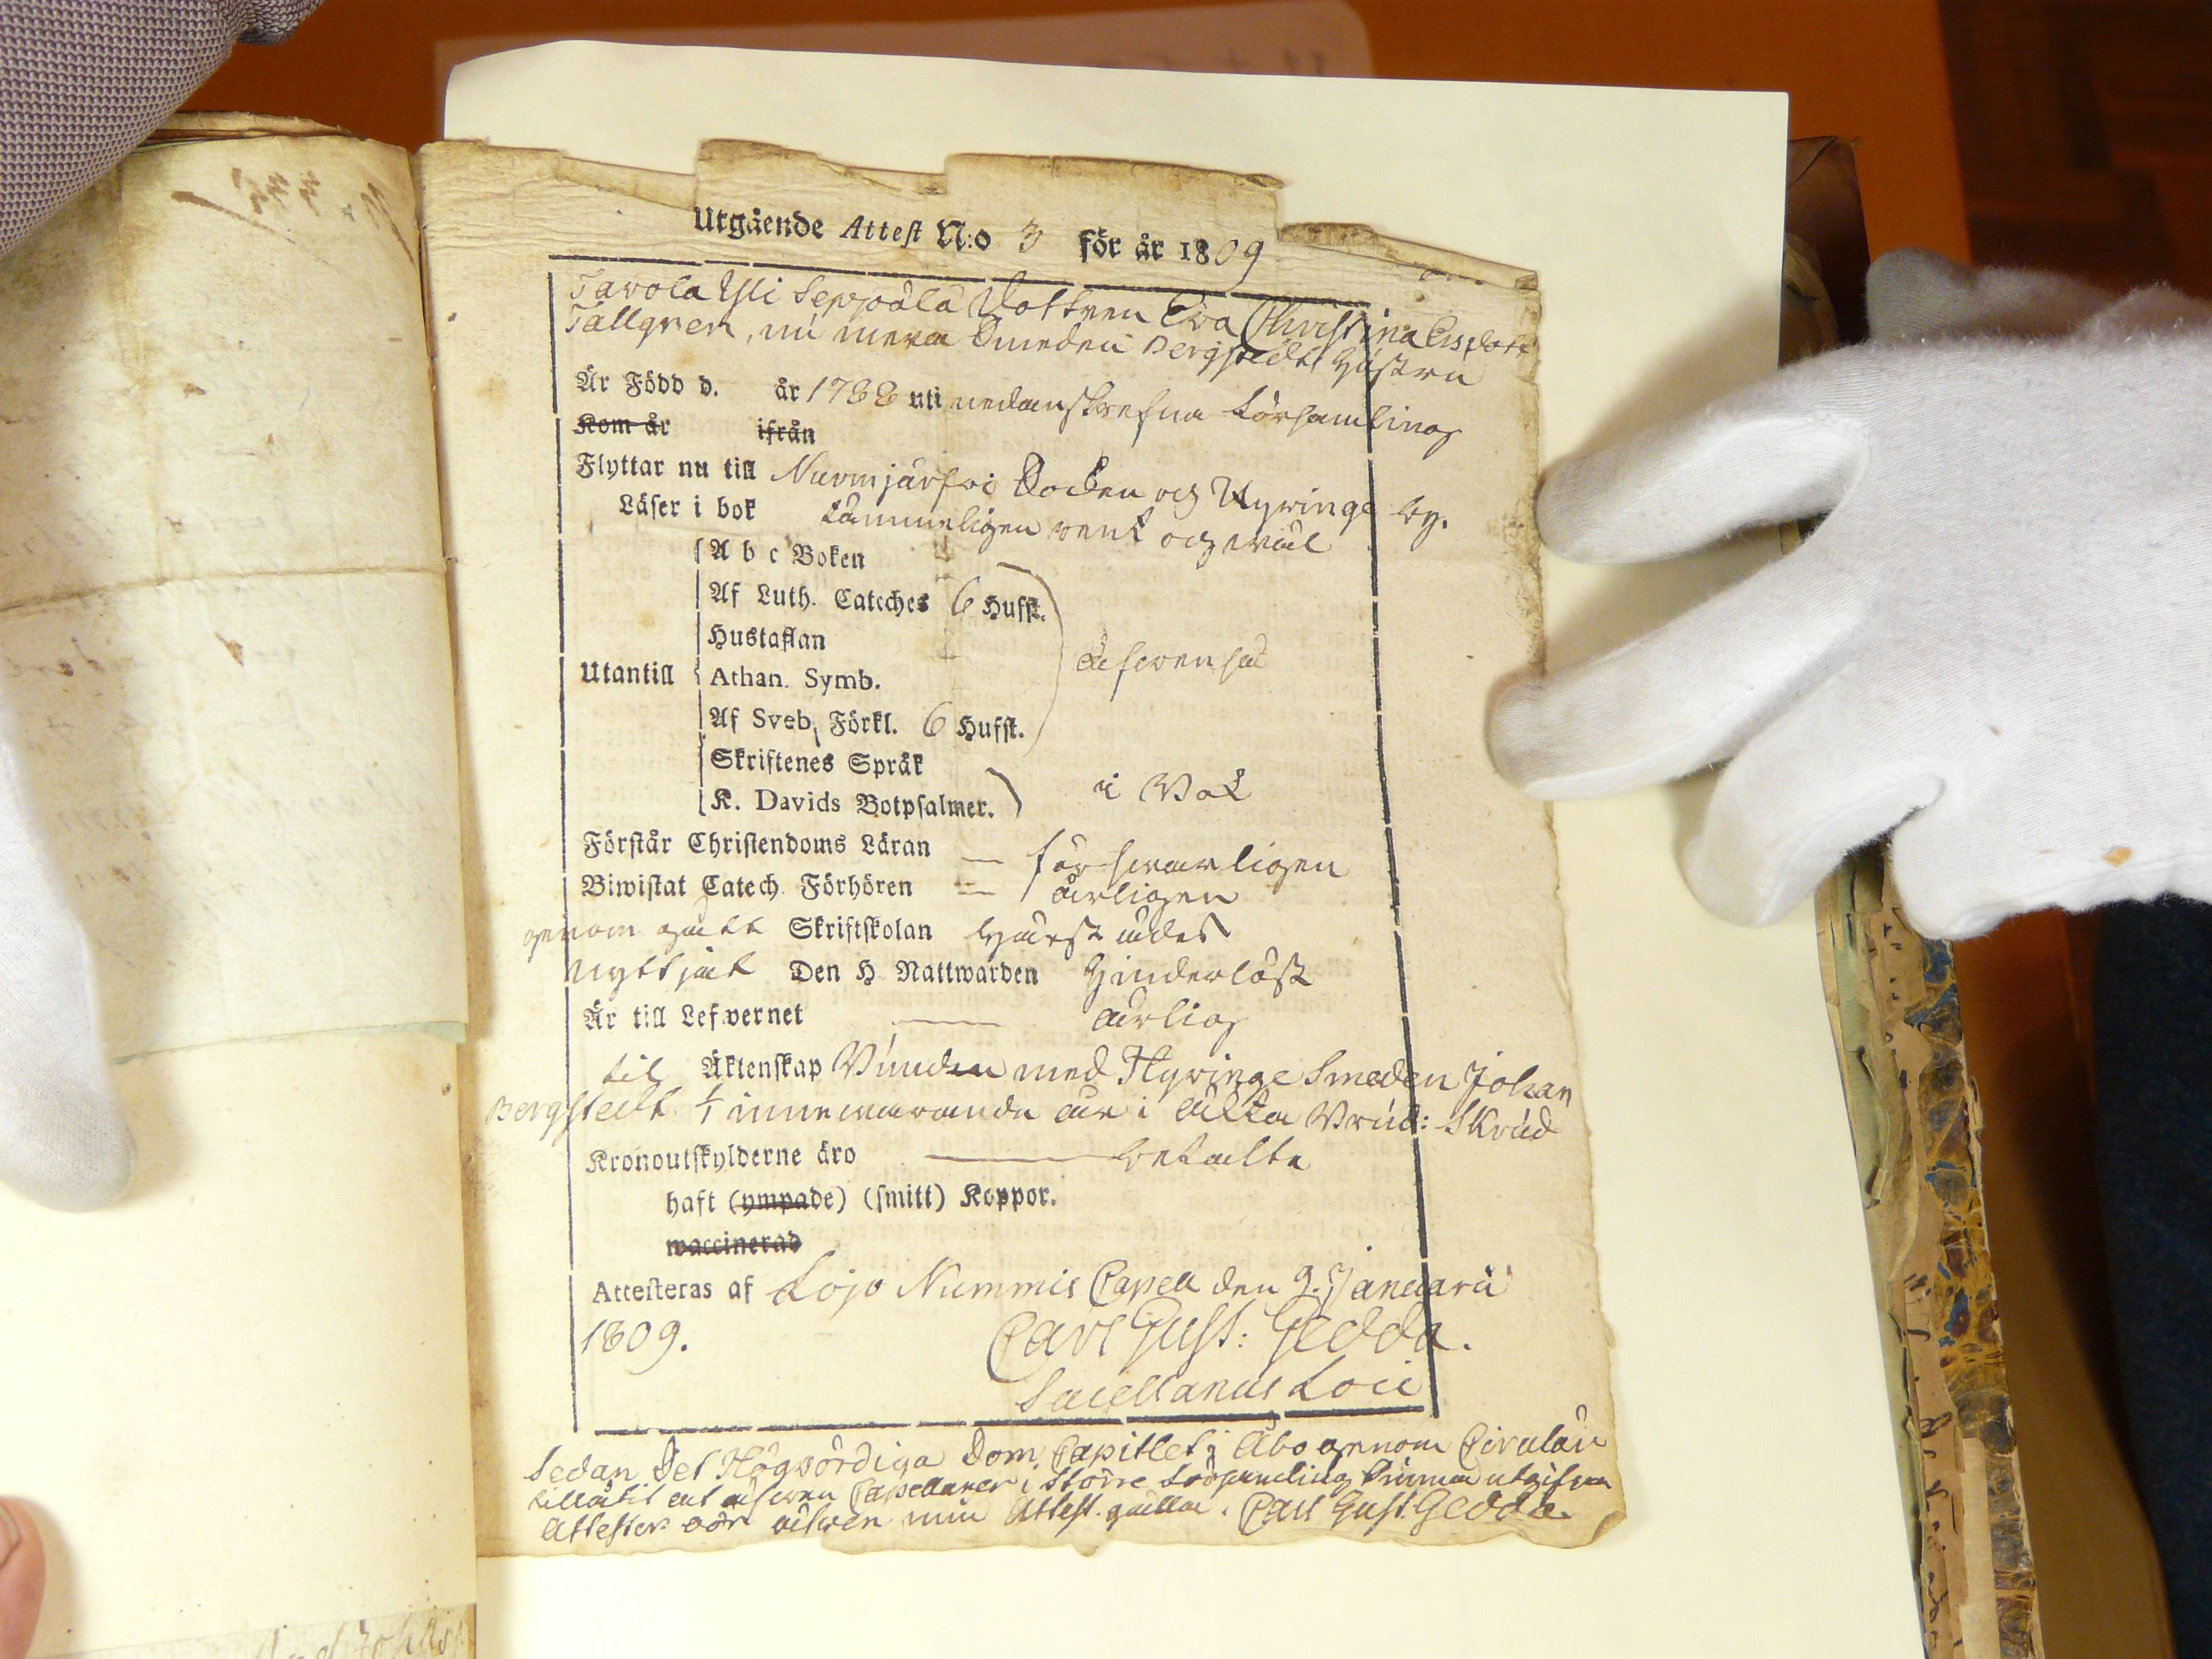 Utgående Attest N:o 3 för år 1809
Tavola Yli Seppälä Dottren Eva Christina
Tallgren, nu mera Smeden Bergstedts Hustru
Är Född d. år 1788 uti nedanskrefna Församling
Kom år ifrån
Flyttar nu till Nurmijärfvi Socken och Hyvinge by.
Läser i bok tämmeligen rent och wäl
A b c Boken
Af Luth. Cateches 6 Hufst.
Hustaflan
Utantill Athan. Symb.
Af Sveb. Förkl. 6 Hufst.
Skriftenes Språk
K. Davids Botpsalmer. i Bok
Förstår Christendoms Läran — försvarligen
Biwistat Catech. Förhören — årligen
genom gått Skriftskolan
Nyttjat Den H. Nattwarden Hinderlöst
Är till Lefwernet — ärlig
til Äktenskap Bunden med Hyvinge Smeden Johan
Bergstedt 1/1 innevarande år i äkta Brud: Skrud
Kronoutskylderne äro — betalte
haft (ympade) (smitt) Koppor.
waccinerad
Attesteras af Lojo Nummis Capell den 9. Januarii
1809. Carl Gust: Gedda.
Sacellanus Loci
Sedan Det Högvördiga Dom Capitlet i Åbo genom Circulär
tillåtit at äfven Capellaner i större Församling kunna utgifva
Attester bör äfven min Attest gälla. Carl Gust. Gedda.